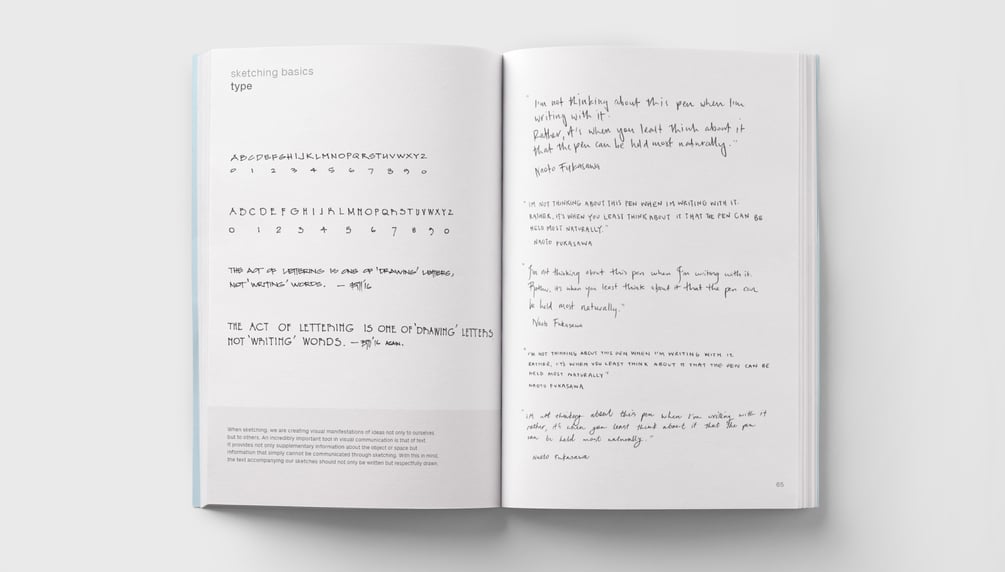 sketching basics
type
ABCDEFGHIJKLMNOPQRSTUVWXYZ
0 1 2 3 4 5 6 7 8 9 0
ABCDEFGHIJKLMNOPQRSTUVWXYZ
0 1 2 3 4 5 6 7 8 9 0
THE ACT OF LETTERING IS ONE OF 'DRAWING' LETTERS,
NOT 'WRITING' WORDS. —
THE ACT OF LETTERING IS ONE OF 'DRAWING' LETTERS
NOT 'WRITING' WORDS. — '16 AGAIN.
When sketching, we are creating visual manifestations of ideas not only to ourselves
but to others. An incredibly important tool in visual communication is that of text.
It provides not only supplementary information about the object or space but
information that simply cannot be communicated through sketching. With this in mind,
the text accompanying our sketches should not only be written but respectfully drawn.
"I'm not thinking about this pen when I'm
writing with it.
Rather, it's when you least think about it
that the pen can be held most naturally."
Naoto Fukasawa
"I'M NOT THINKING ABOUT THIS PEN WHEN I'M WRITING WITH IT.
RATHER, IT'S WHEN YOU LEAST THINK ABOUT IT THAT THE PEN CAN BE
HELD MOST NATURALLY."
NAOTO FUKASAWA
"I'm not thinking about this pen when I'm writing with it.
Rather, it's when you least think about it that the pen can
be held most naturally."
Naoto Fukasawa
"I'M NOT THINKING ABOUT THIS PEN WHEN I'M WRITING WITH IT
RATHER, IT'S WHEN YOU LEAST THINK ABOUT IT THAT THE PEN CAN BE
HELD MOST NATURALLY"
NAOTO FUKASAWA
"I'm not thinking about this pen when I'm writing with it
rather, it's when you least think about it that the pen
can be held most naturally."
Naoto Fukasawa
65